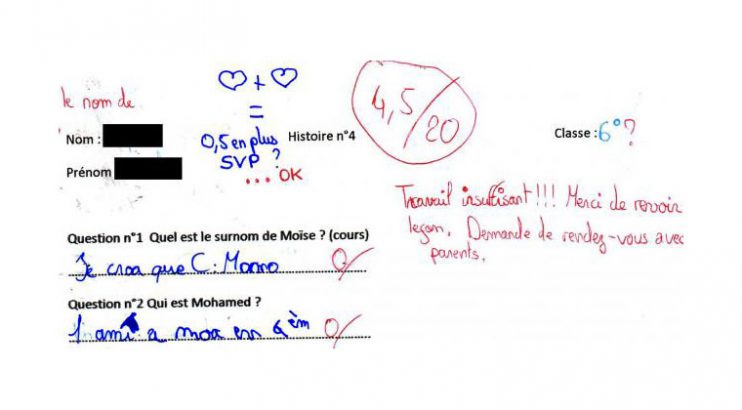 le nom de
♡ + ♡
=
0,5 en plus
SVP ?
... OK
4,5/20
Nom :
Histoire n°4
Classe : 6° ?
Prénom
Travail insuffisant !!! Merci de revoir
leçon. Demande de rendez-vous avec
parents.
Question n°1 Quel est le surnom de Moïse ? (cours)
Je croa que C. Momo 0/
Question n°2 Qui est Mohamed ?
1 ami a moa en 6 èm 0/